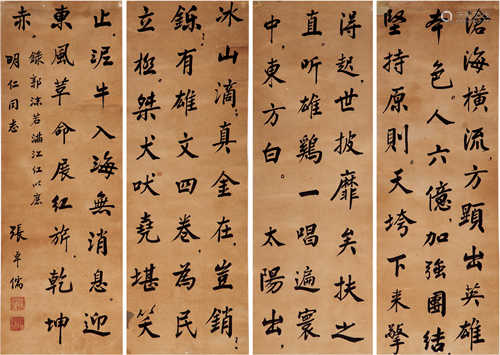 滄海橫流，方顕出英雄
本色。人六億，加強團結，
堅持原則。天垮下来擎
得起，世披靡矣扶之
直。听雄鷄一唱遍寰
中，東方白。太陽出，
冰山滴；真金在，豈銷
鑠？有雄文四卷，為民
立極。桀犬吠堯堪笑
止，泥牛入海無消息。迎
東風革命展红旂，乾坤
赤。
録郭沫若滿江红以應
明仁同志
張卓儒